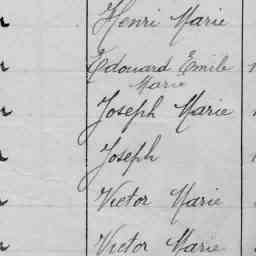 Henri Marie
Edouard Emile
Marie
Joseph Marie
Joseph
Victor Marie
Victor Marie